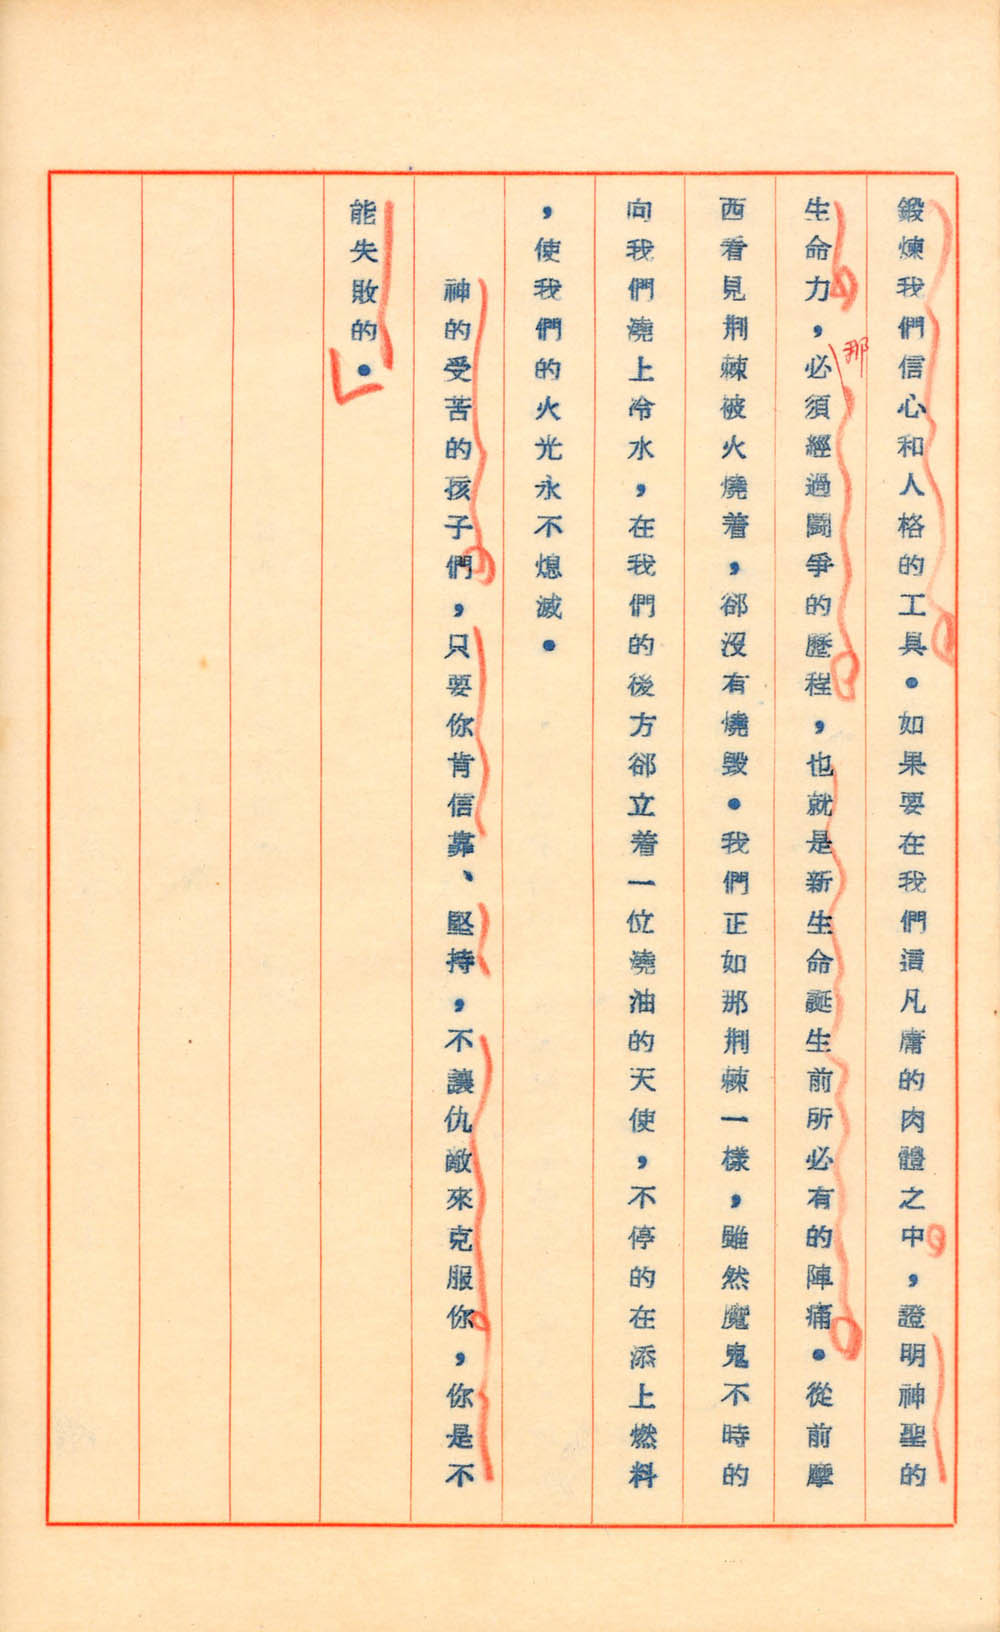 鍛煉我們信心和人格的工具。如果要在我們這凡庸的肉體之中，證明神聖的
生命力，必須經過鬪爭的歷程，也就是新生命誕生前所必有的陣痛。從前摩
那
西看見荆棘被火燒着，郤沒有燒毀。我們正如那荆棘一樣，雖然魔鬼不時的
向我們澆上冷水，在我們的後方郤立着一位澆油的天使，不停的在添上燃料
，使我們的火光永不熄滅。
神的受苦的孩子們，只要你肯信靠、堅持，不讓仇敵來克服你，你是不
能失敗的。